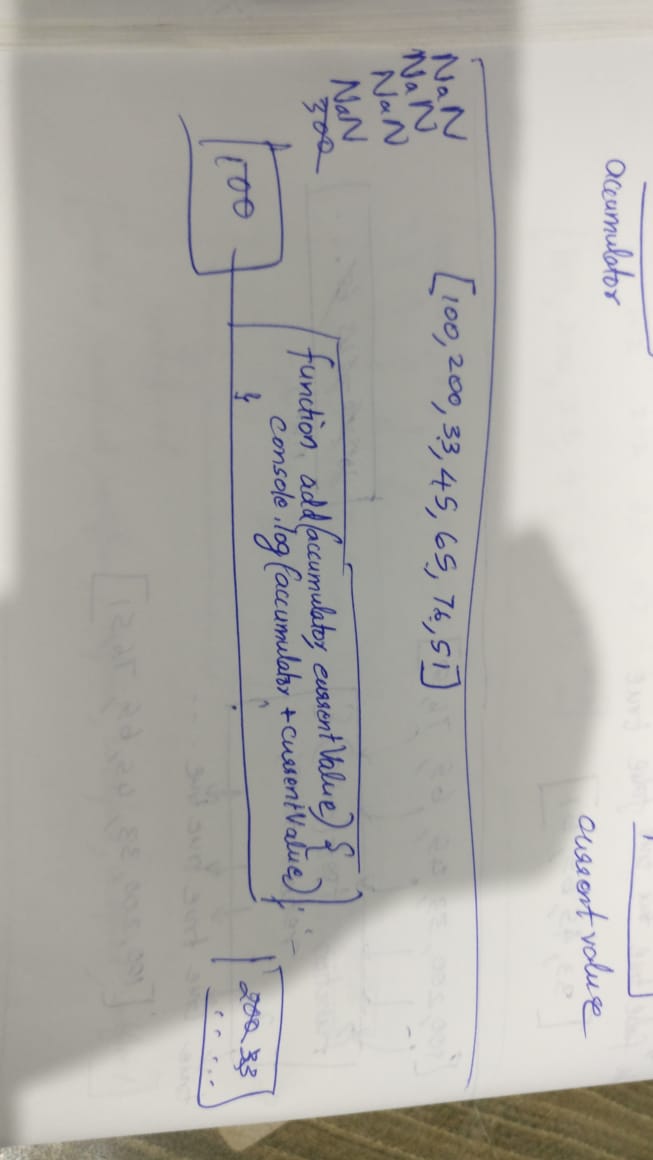 accumulator
current value
NaN
NaN
NaN
NaN
300
[100, 200, 33, 45, 65, 76, 51]
100
function add(accumulator, currentValue) {
console.log(accumulator + currentValue);
}
200 33